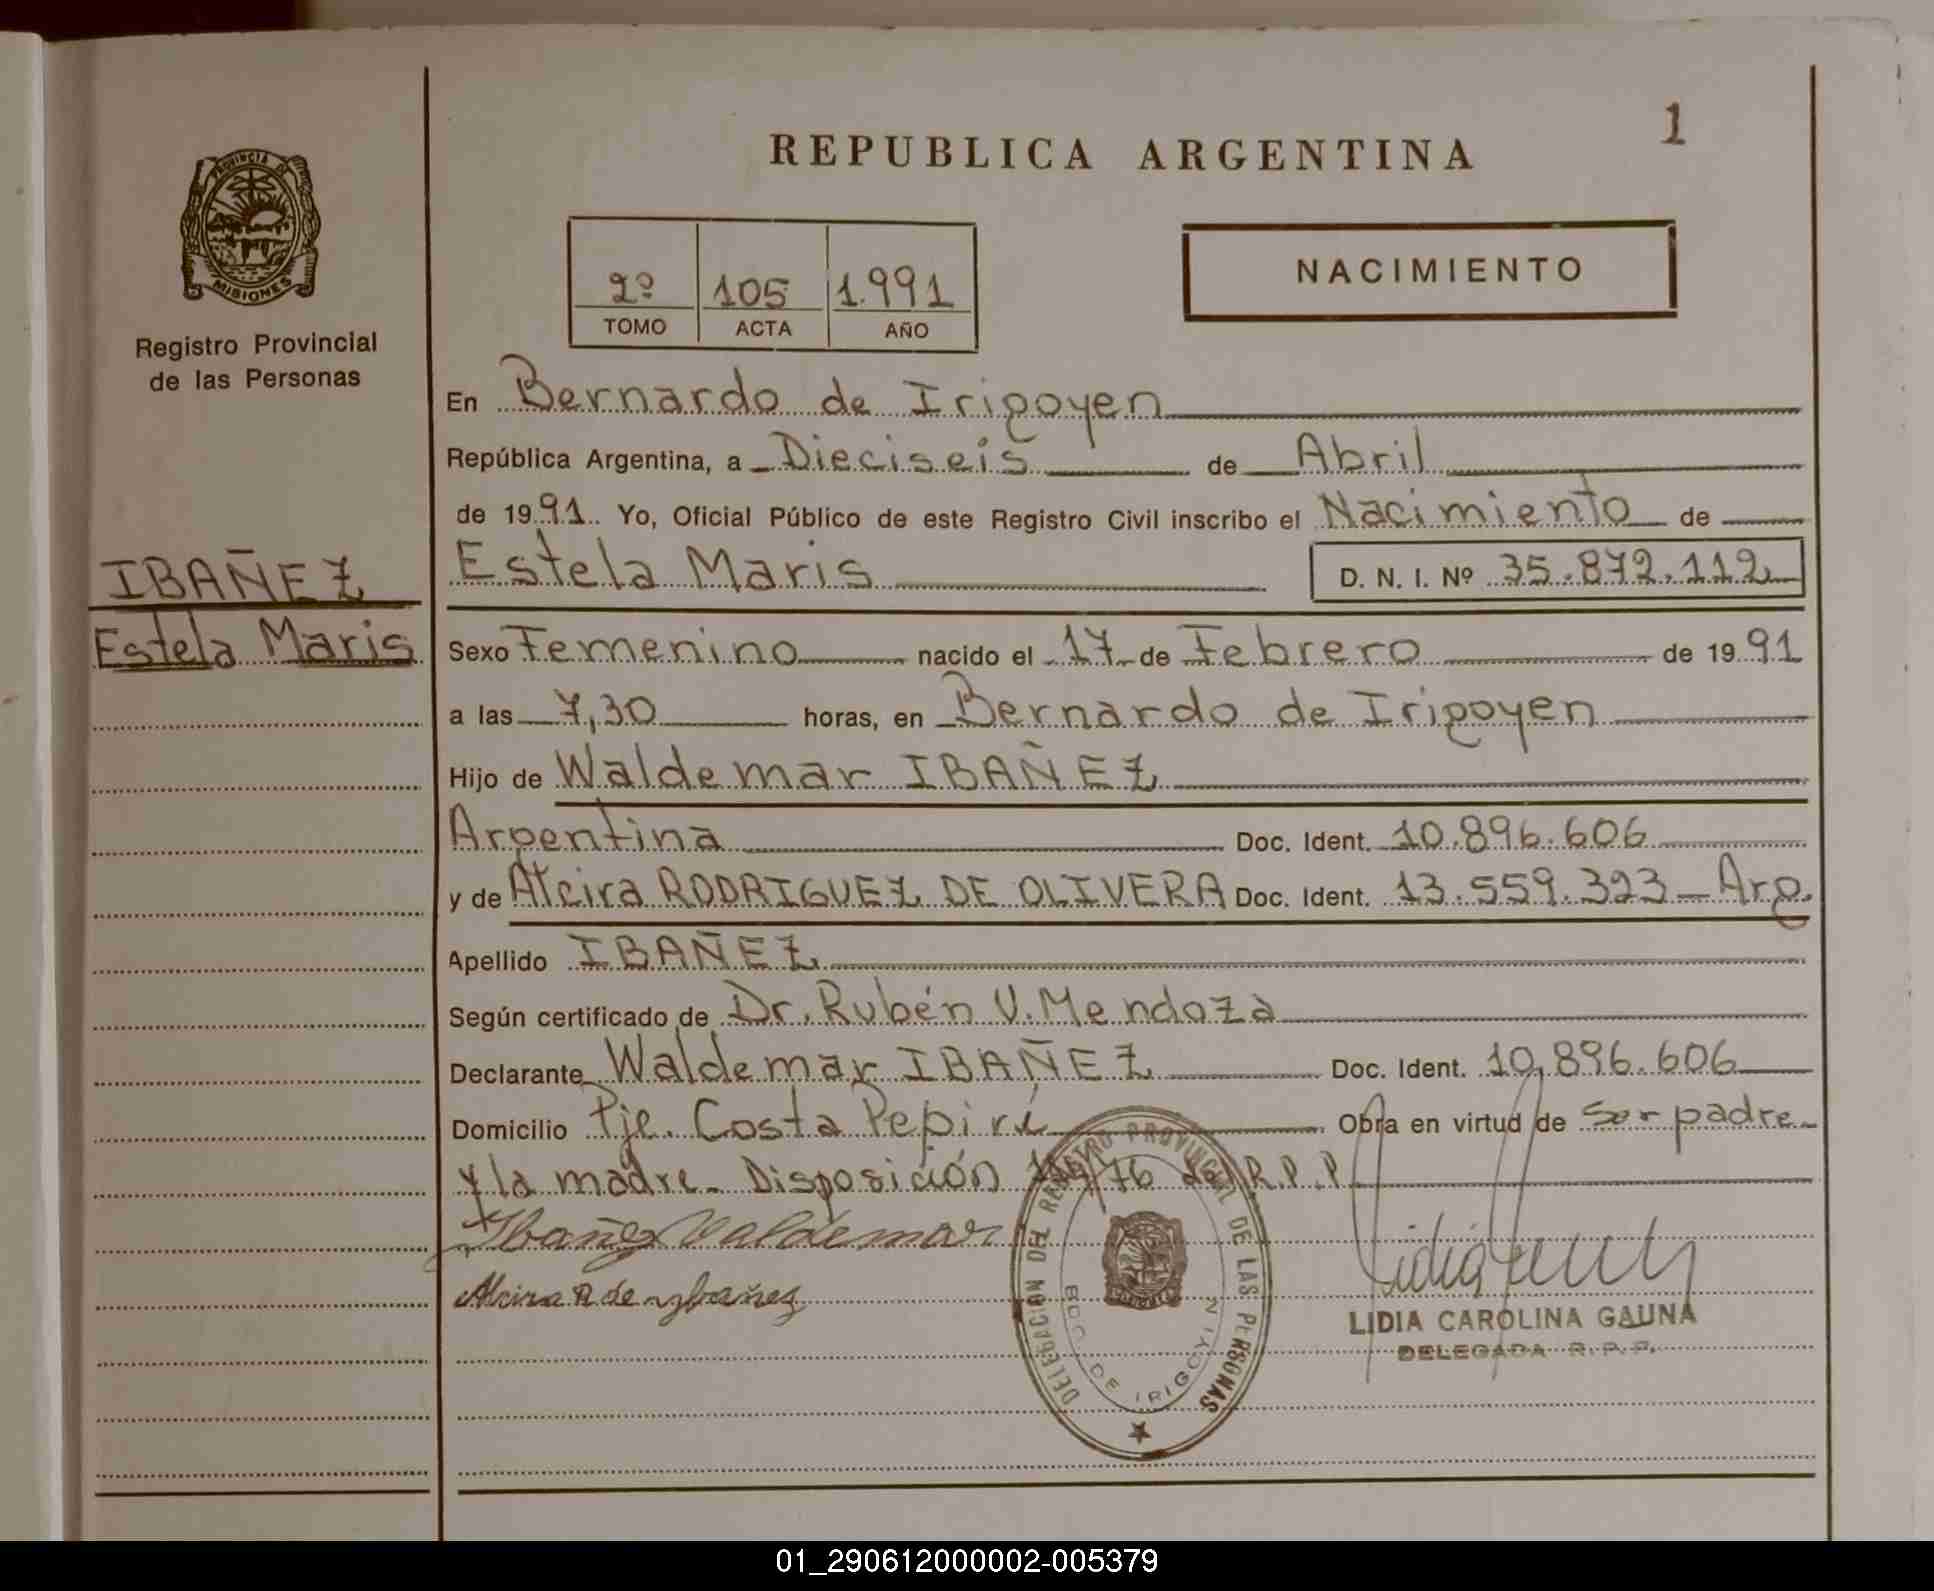 REPUBLICA ARGENTINA
1
PROVINCIA DE
MISIONES
Registro Provincial
de las Personas
2º 105 1.991
TOMO ACTA AÑO
NACIMIENTO
En Bernardo de Irigoyen
República Argentina, a Dieciseis de Abril
de 1991 Yo, Oficial Público de este Registro Civil inscribo el Nacimiento de
IBAÑEZ
Estela Maris
Estela Maris D. N. I. Nº 35.872.112
Sexo Femenino nacido el 17 de Febrero de 1991
a las 7,30 horas, en Bernardo de Irigoyen
Hijo de Waldemar IBAÑEZ
Argentina Doc. Ident. 10.896.606
y de Alcira RODRIGUEZ DE OLIVERA Doc. Ident. 13.559.323 - Arg.
Apellido IBAÑEZ
Según certificado de Dr. Rubén V. Mendoza
Declarante Waldemar IBAÑEZ Doc. Ident. 10.896.606
Domicilio Pje. Costa Pepirí Obra en virtud de Ser padre
y la madre. Disposición /76 R.P.P.
Ibañez Valdemar
Alcira R de Ybañez
DELEGACION DEL REGISTRO PROVINCIAL DE LAS PERSONAS
BDO. DE IRIGOYEN
LIDIA CAROLINA GAUNA
DELEGADA R.P.P.
01_290612000002-005379